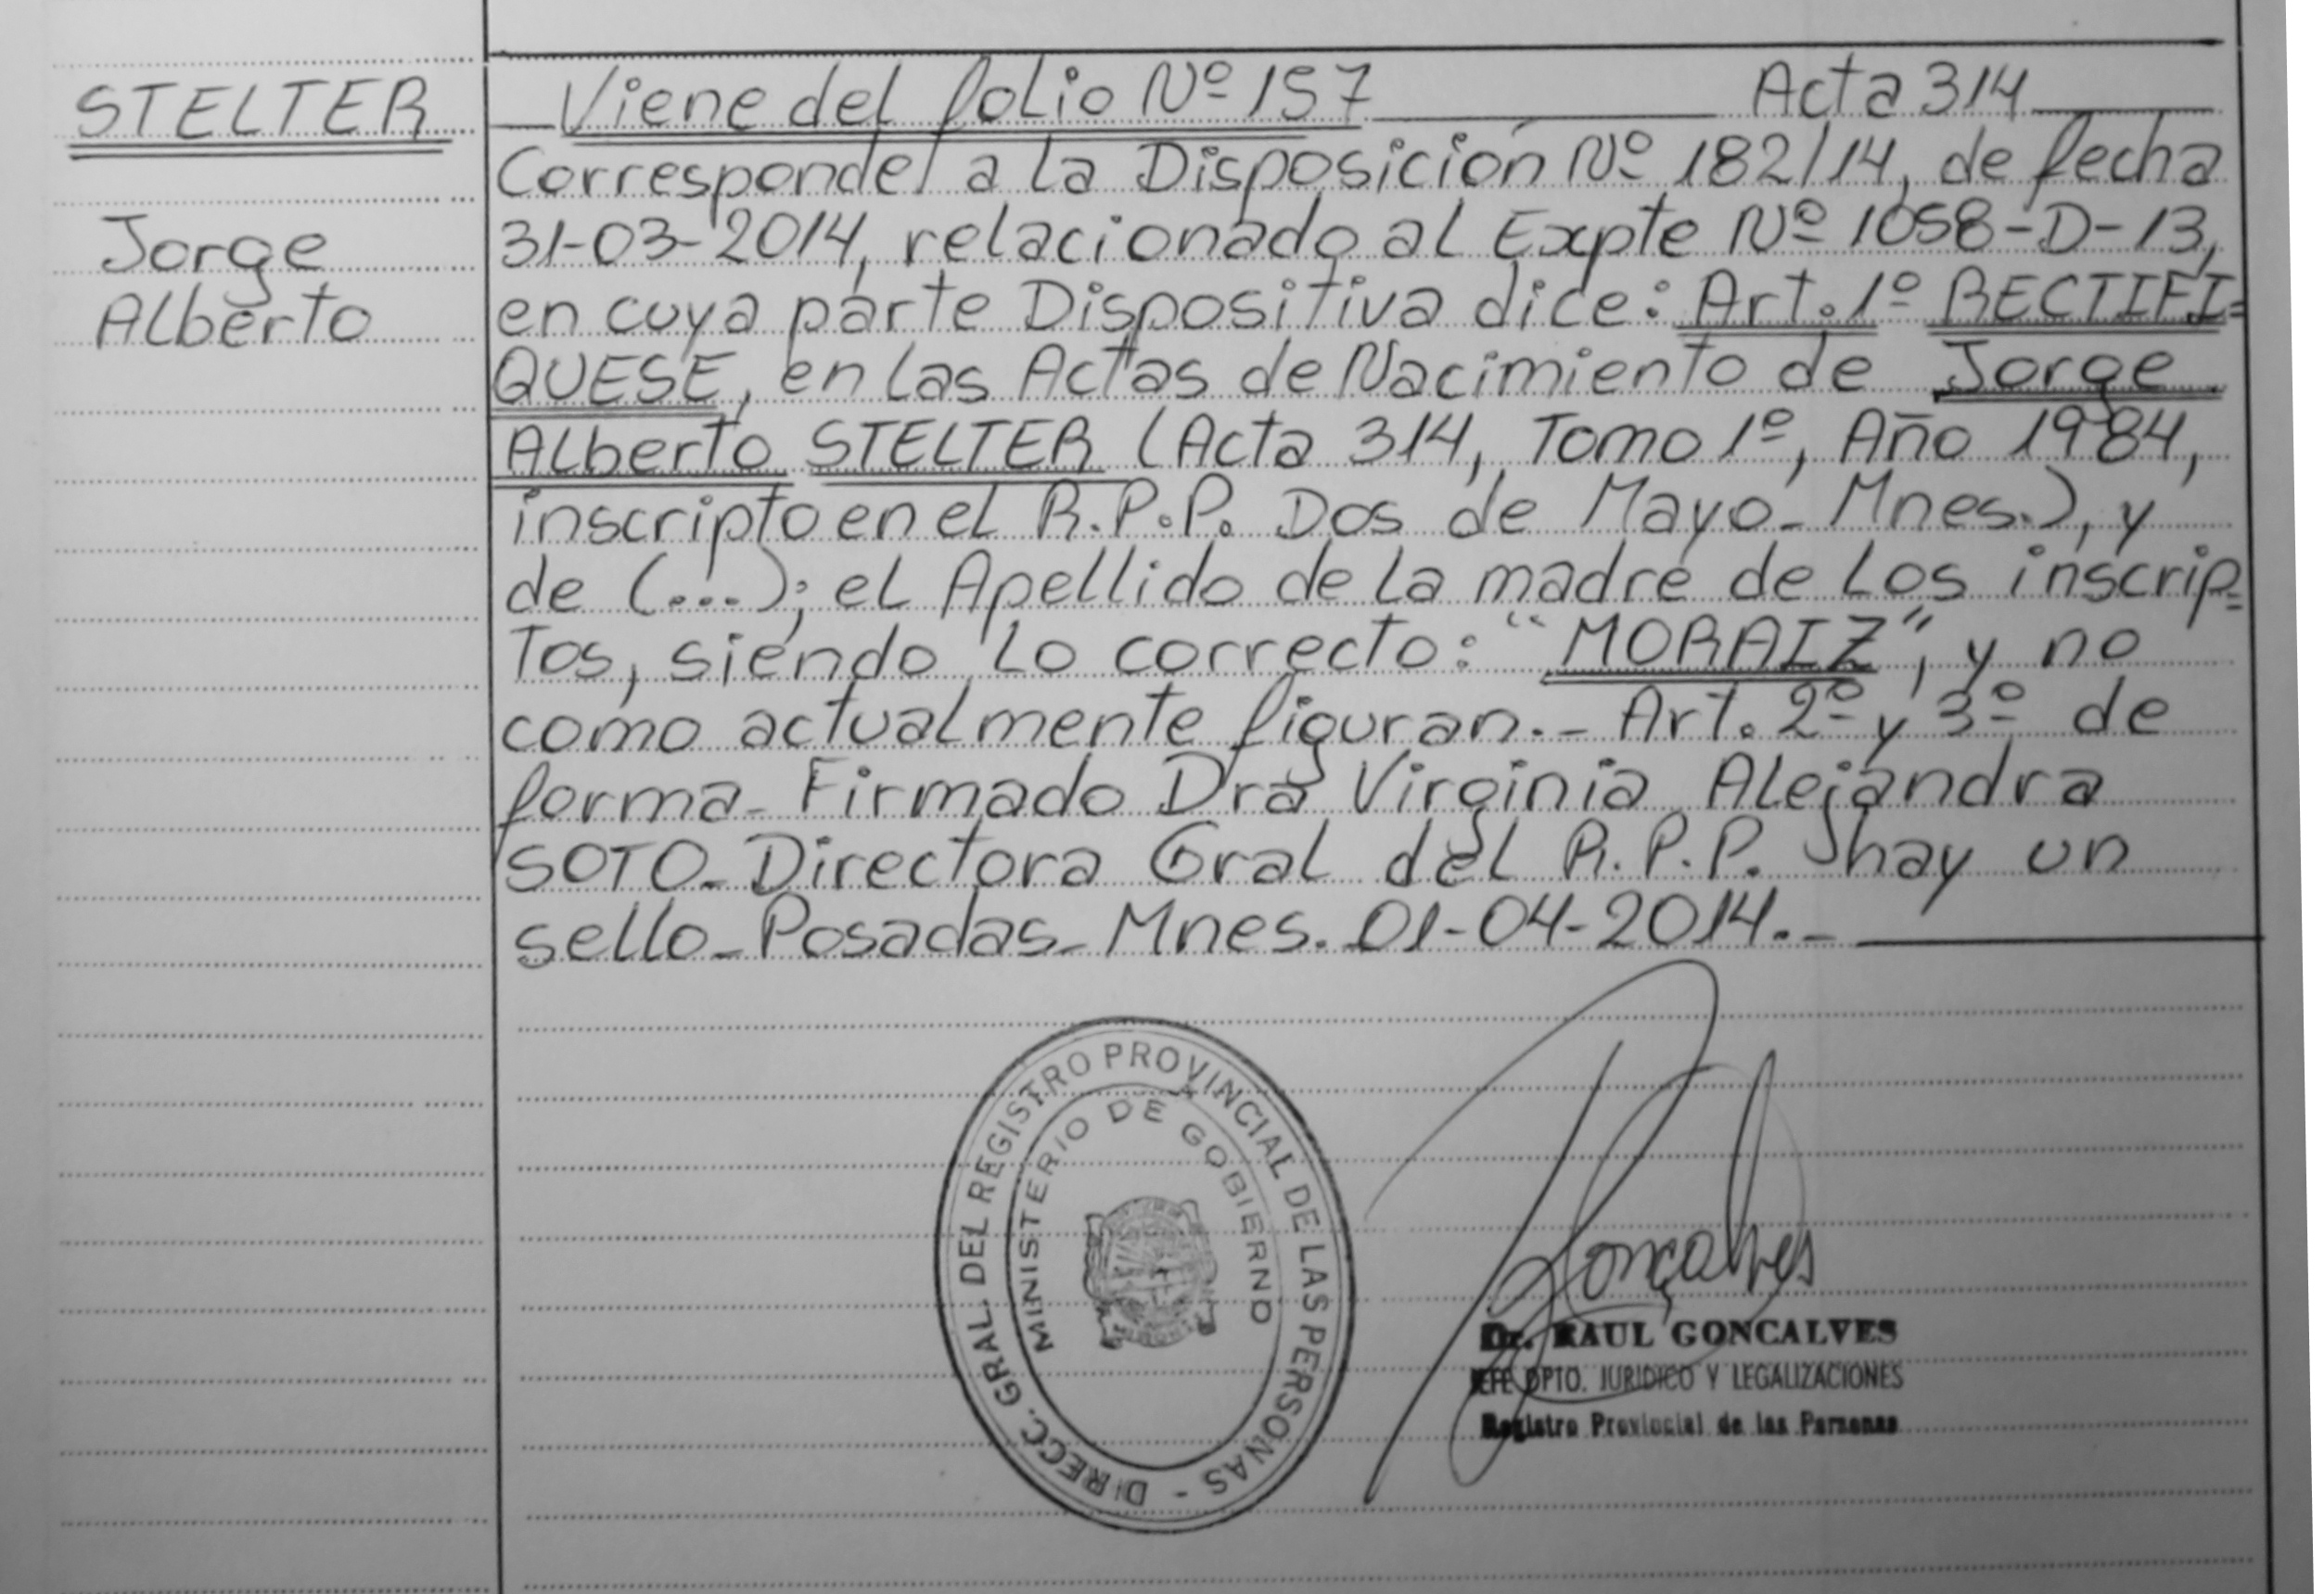 STELTER
Jorge
Alberto
Viene del folio Nº 157 Acta 314
Corresponde a la Disposición Nº 182/14, de fecha
31-03-2014, relacionado al Expte Nº 1058-D-13,
en cuya parte Dispositiva dice: Art. 1º RECTIFI=
QUESE, en las Actas de Nacimiento de Jorge
Alberto STELTER (Acta 314, Tomo 1º, Año 1984,
inscripto en el R.P.P. Dos de Mayo- Mnes.), y
de (...); el Apellido de la madre de los inscrip=
tos, siendo lo correcto: "MORAIZ", y no
como actualmente figuran.- Art. 2º y 3º de
forma- Firmado Dra Virginia Alejandra
SOTO- Directora Gral del R.P.P. hay un
sello- Posadas- Mnes. 01-04-2014.-
DIRECC. GRAL. DEL REGISTRO PROVINCIAL DE LAS PERSONAS -
MINISTERIO DE GOBIERNO
Gonçalves
Dr. RAUL GONCALVES
JEFE DPTO. JURIDICO Y LEGALIZACIONES
Registro Provincial de las Personas